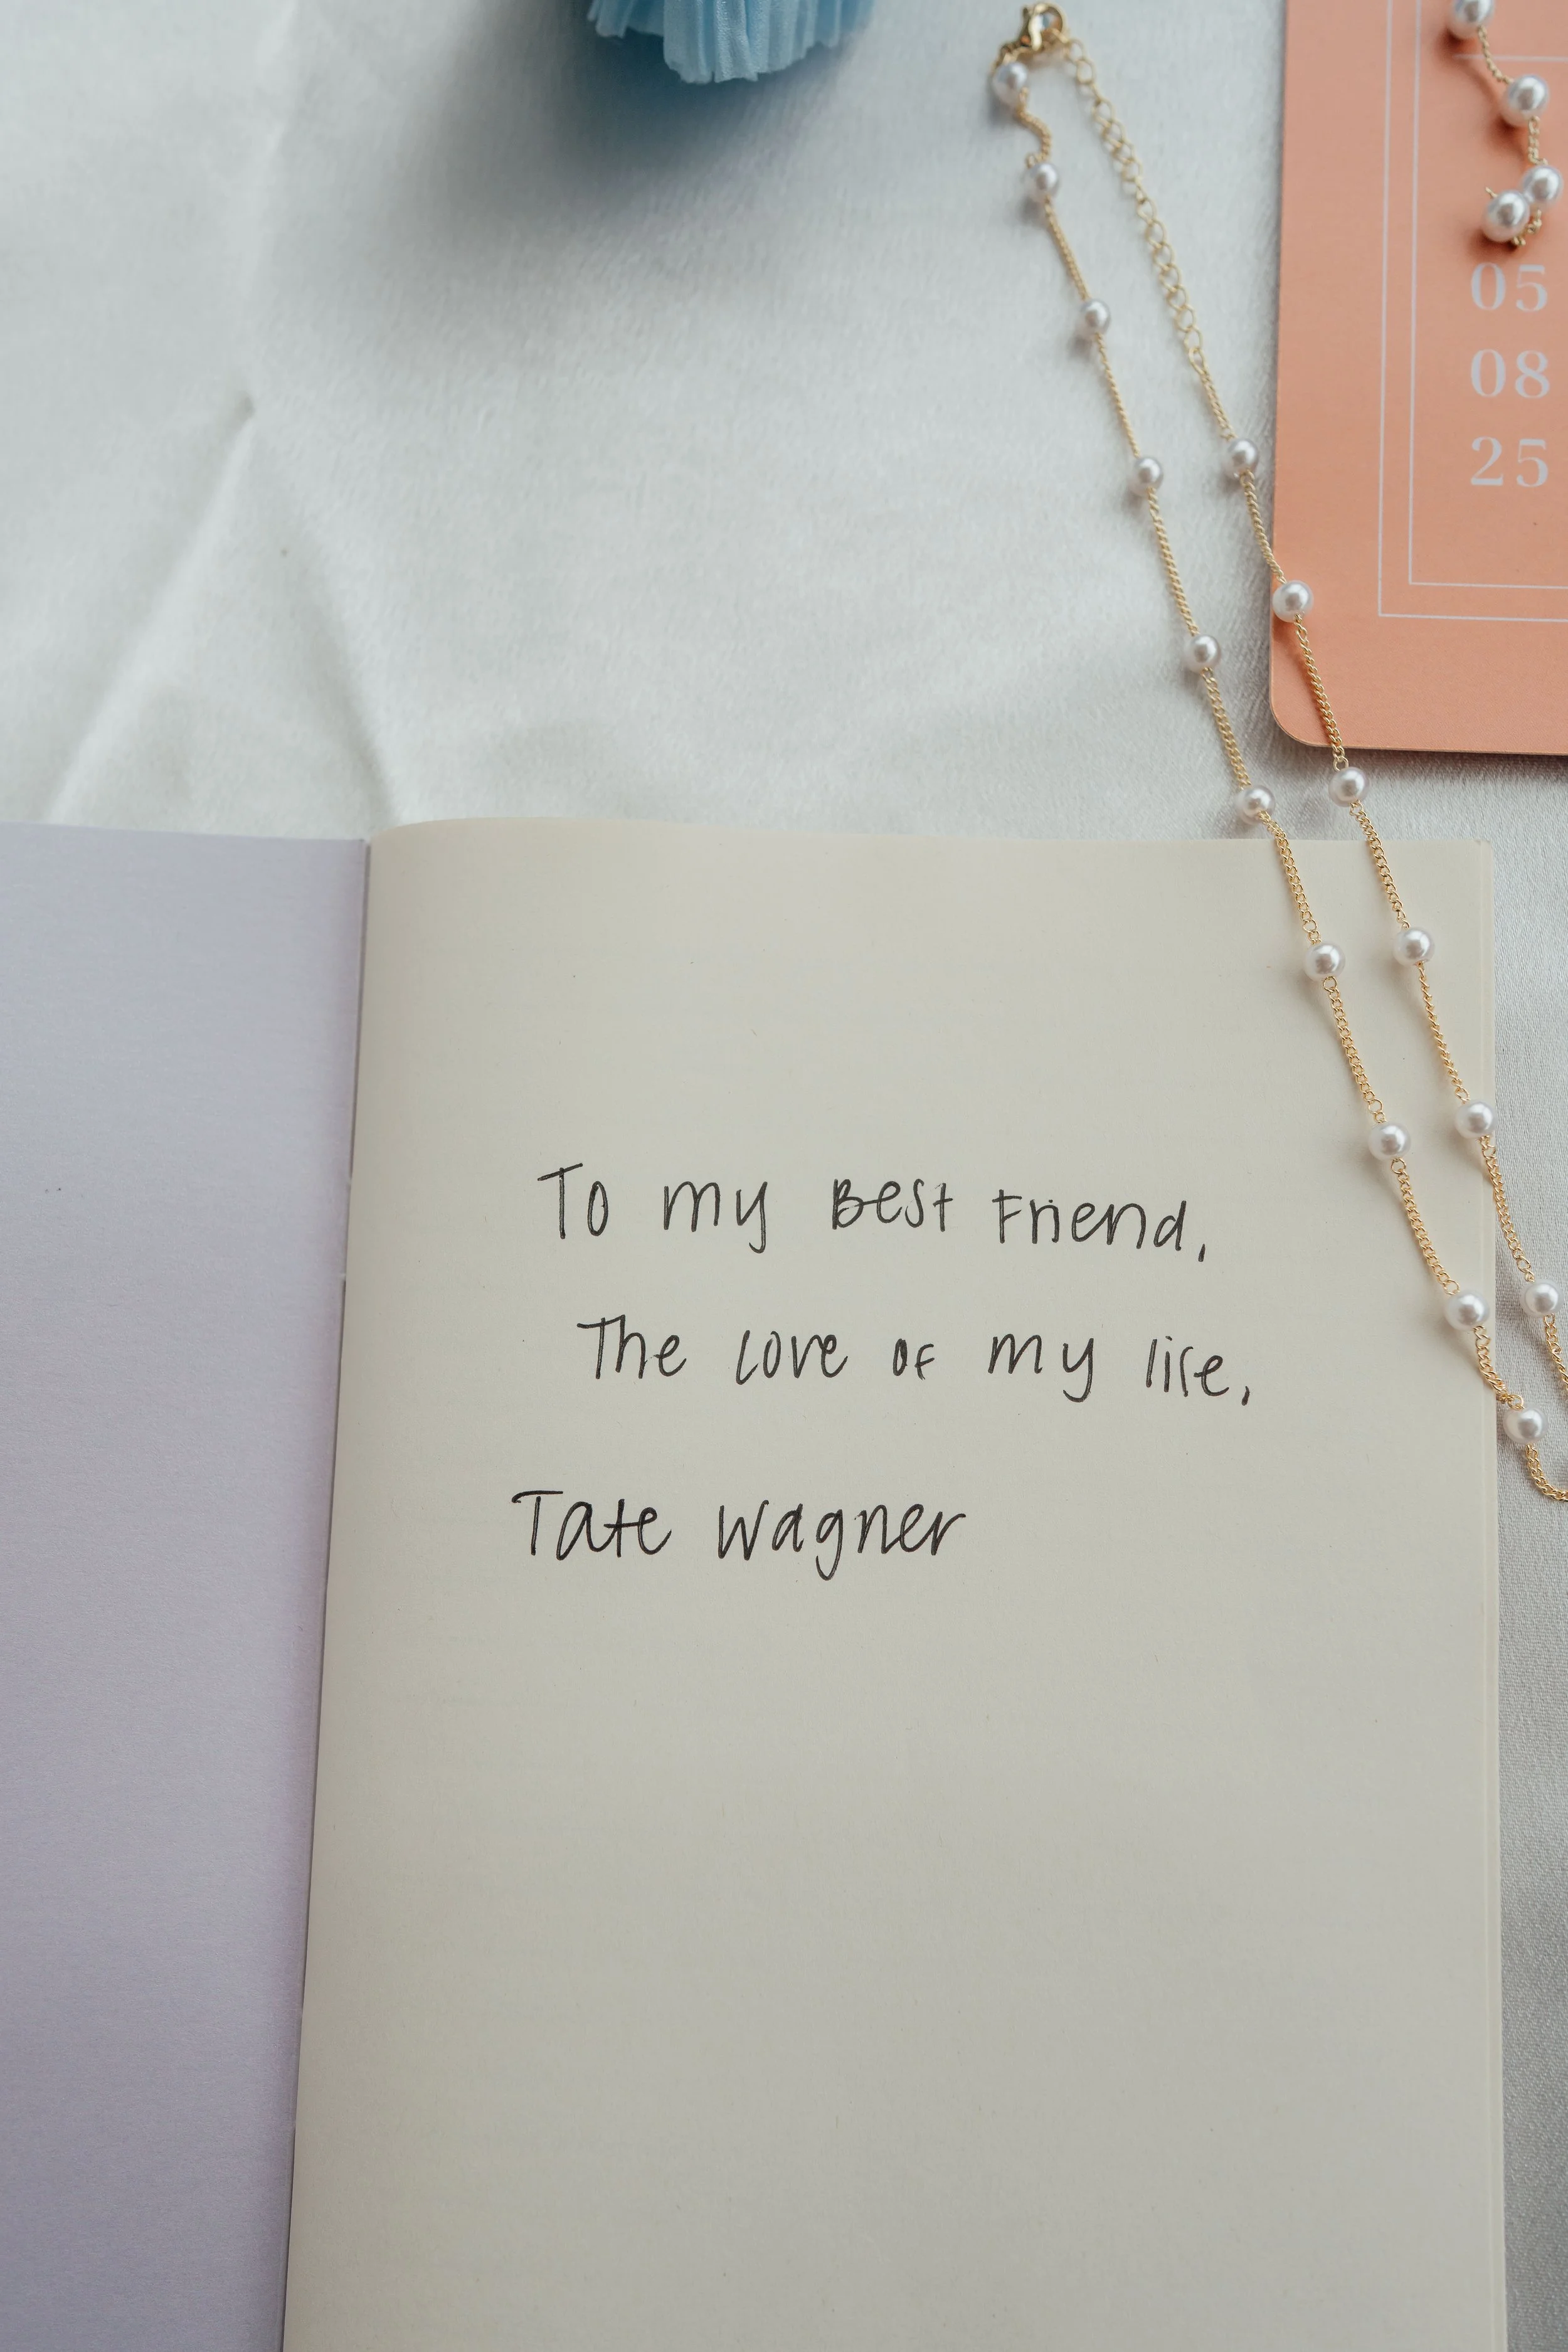 05
08
25
To my Best Friend,
The love of my life,
Tate Wagner